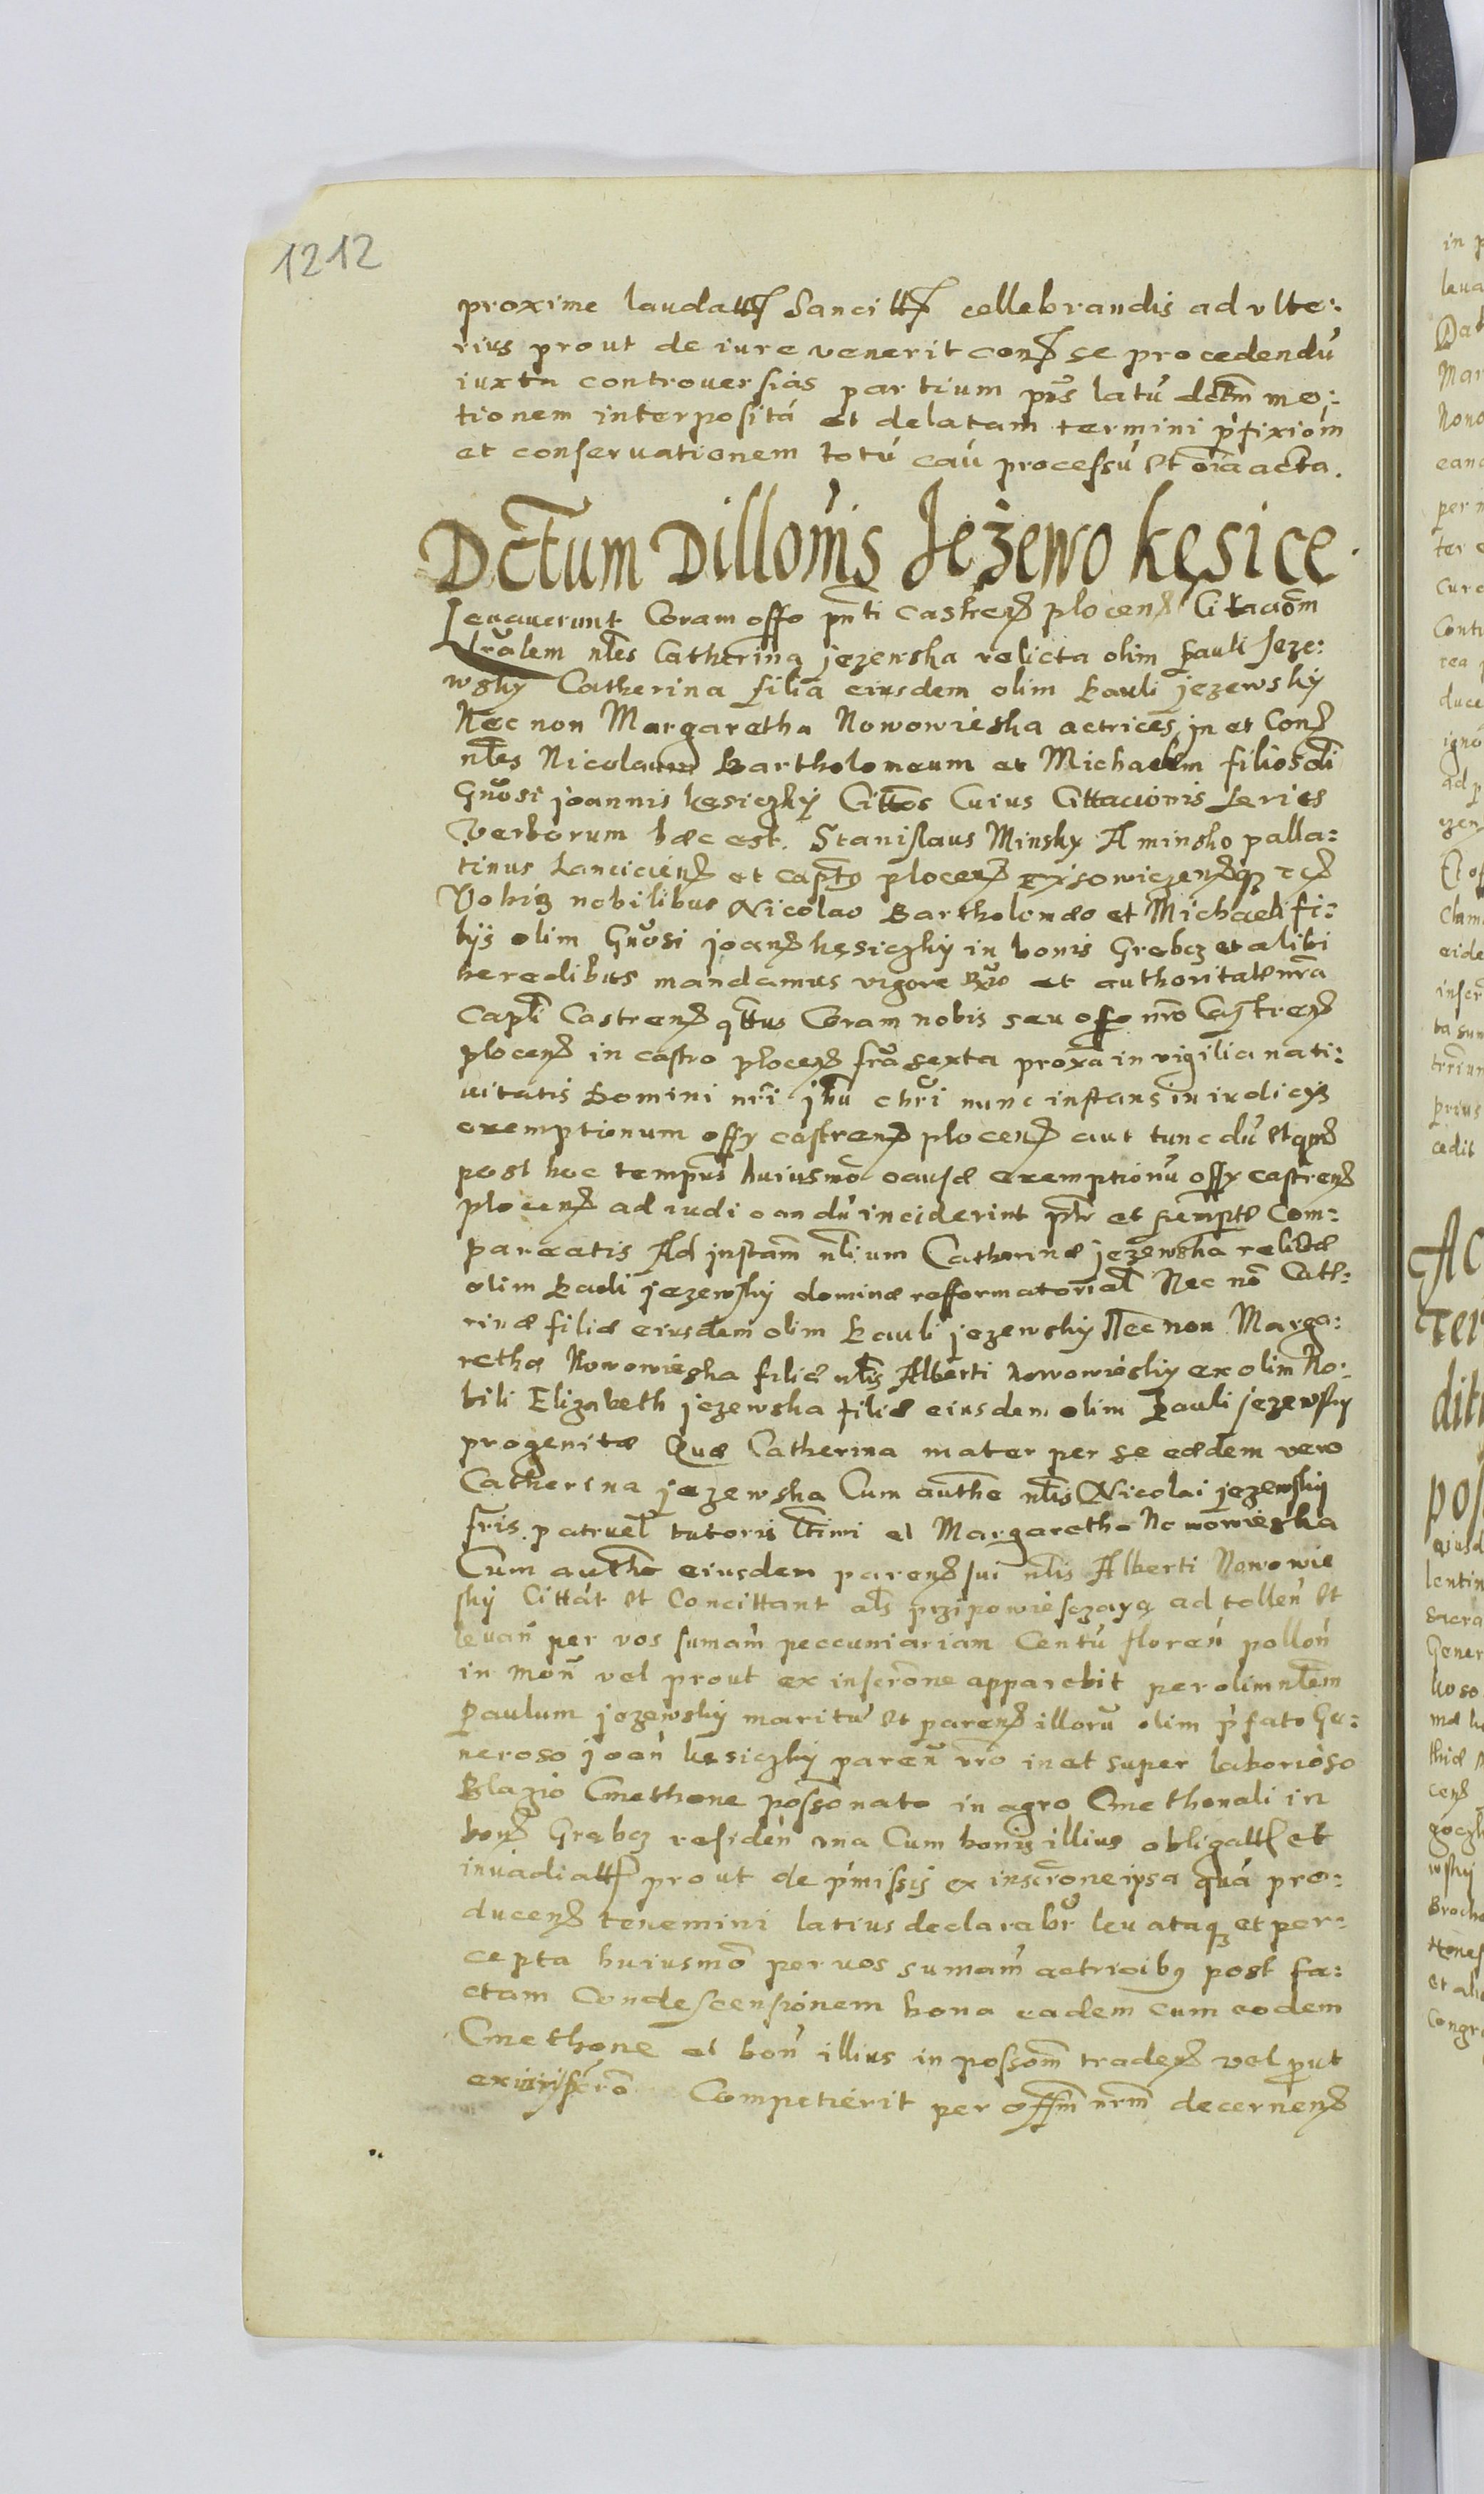 1212
proxime laudatt Sancitt cellebrandis ad vlte:
rius prout de iure venerit con se procedendū
iuxta controuersias partium pns latū dctm me:
tionem interpositā et delatam termini p̄fixiom
et conseruationem totū caū processū et oīa acta.
Dctum Dillōnis Jeżewo kęsice.
Leuauerunt Coram offo pn̄ti castren plocen Citaciōm
lrālem nl̄es Catherina jezewska relicta olim Pauli Jeze:
wsky Catherina filia eiusdem olim Pauli jezewsky
Nec non Margaretha Nowowieska actrices in et Con
nl̄es Nicolaum Bartholomeum et Michaelem filios oli
Gnōsi joannis kęsiczky Cittōs Cuius Cittacionis Series
Verborum hæc est. Stanislaus Minsky A minsko palla:
tinus Lancicien et captus plocen
Vobis nobilibus Nicolao Bartholomæo et Michaeli fi:
lijs olim Gnōsi joan kęsiczky in bonis Grębcz et alibi
heredibus mandamus vigore et authoritate nr̄a
Capli Castren qttus Coram nobis seu offo nr̄o Castren
plocen in castro plocen fr̄a sexta proxā in vigilia nati:
uitatis Domini nr̄i jhū chr̄i nunc instans in iudicijs
exemptionum offy castren plocen aut tunc dū et qn
post hoc tempus huiusmō causæ exemptionū offy castren
plocen ad iudicandū inciderint ptr et perempte Com:
pareatis Ad instam nl̄ium Catherinæ jezewska relictæ
olim Pauli jezewsky dominæ refformatorial Nec nō Cathe:
rinæ filiæ eiusdem olim Pauli jezewsky Nec non Marga:
rethæ Nowowieska filiæ nl̄is Alberti Nowowiesky ex olim No:
bili Elizabeth jezewska filiæ eiusdem olim Pauli jezewsky
progenitæ Quæ Catherina mater per se eædem vero
Catherina jezewska Cum authe nl̄is Nicolai jezewsky
fr̄is patruel tutoris ltimi et Margaretha Nowowieska
Cum authe eiusdem paren sui nl̄is Alberti Nowowie
sky Cittāt et Concittant als przipowiesczaya ad tollen et
leuan per vos sumam peccuniariam Centū floren pollon
in mon vel prout ex inscrōne apparebit per olim nl̄em
Paulum jezewsky maritū et paren illorū olim p̄fato Ge:
neroso joan kęsiczky paren vr̄o in et super laborioso
Blazio Cmethone possonato in agro Cmethonali in
bon Grębcz residen vna Cum bonis illius obligatt et
inuadiatt prout de p̄missis ex inscrōne ipsa quā pro:
ducen tenemini latius declarabr leuataq et per:
cepta huiusmō per vos sumam actricibus post fa:
ctam Condescensionem bona eadem cum eodem
Cmethone et bon illius in possom traden vel prout
ex inscrō Competierit per offm nrm decernen